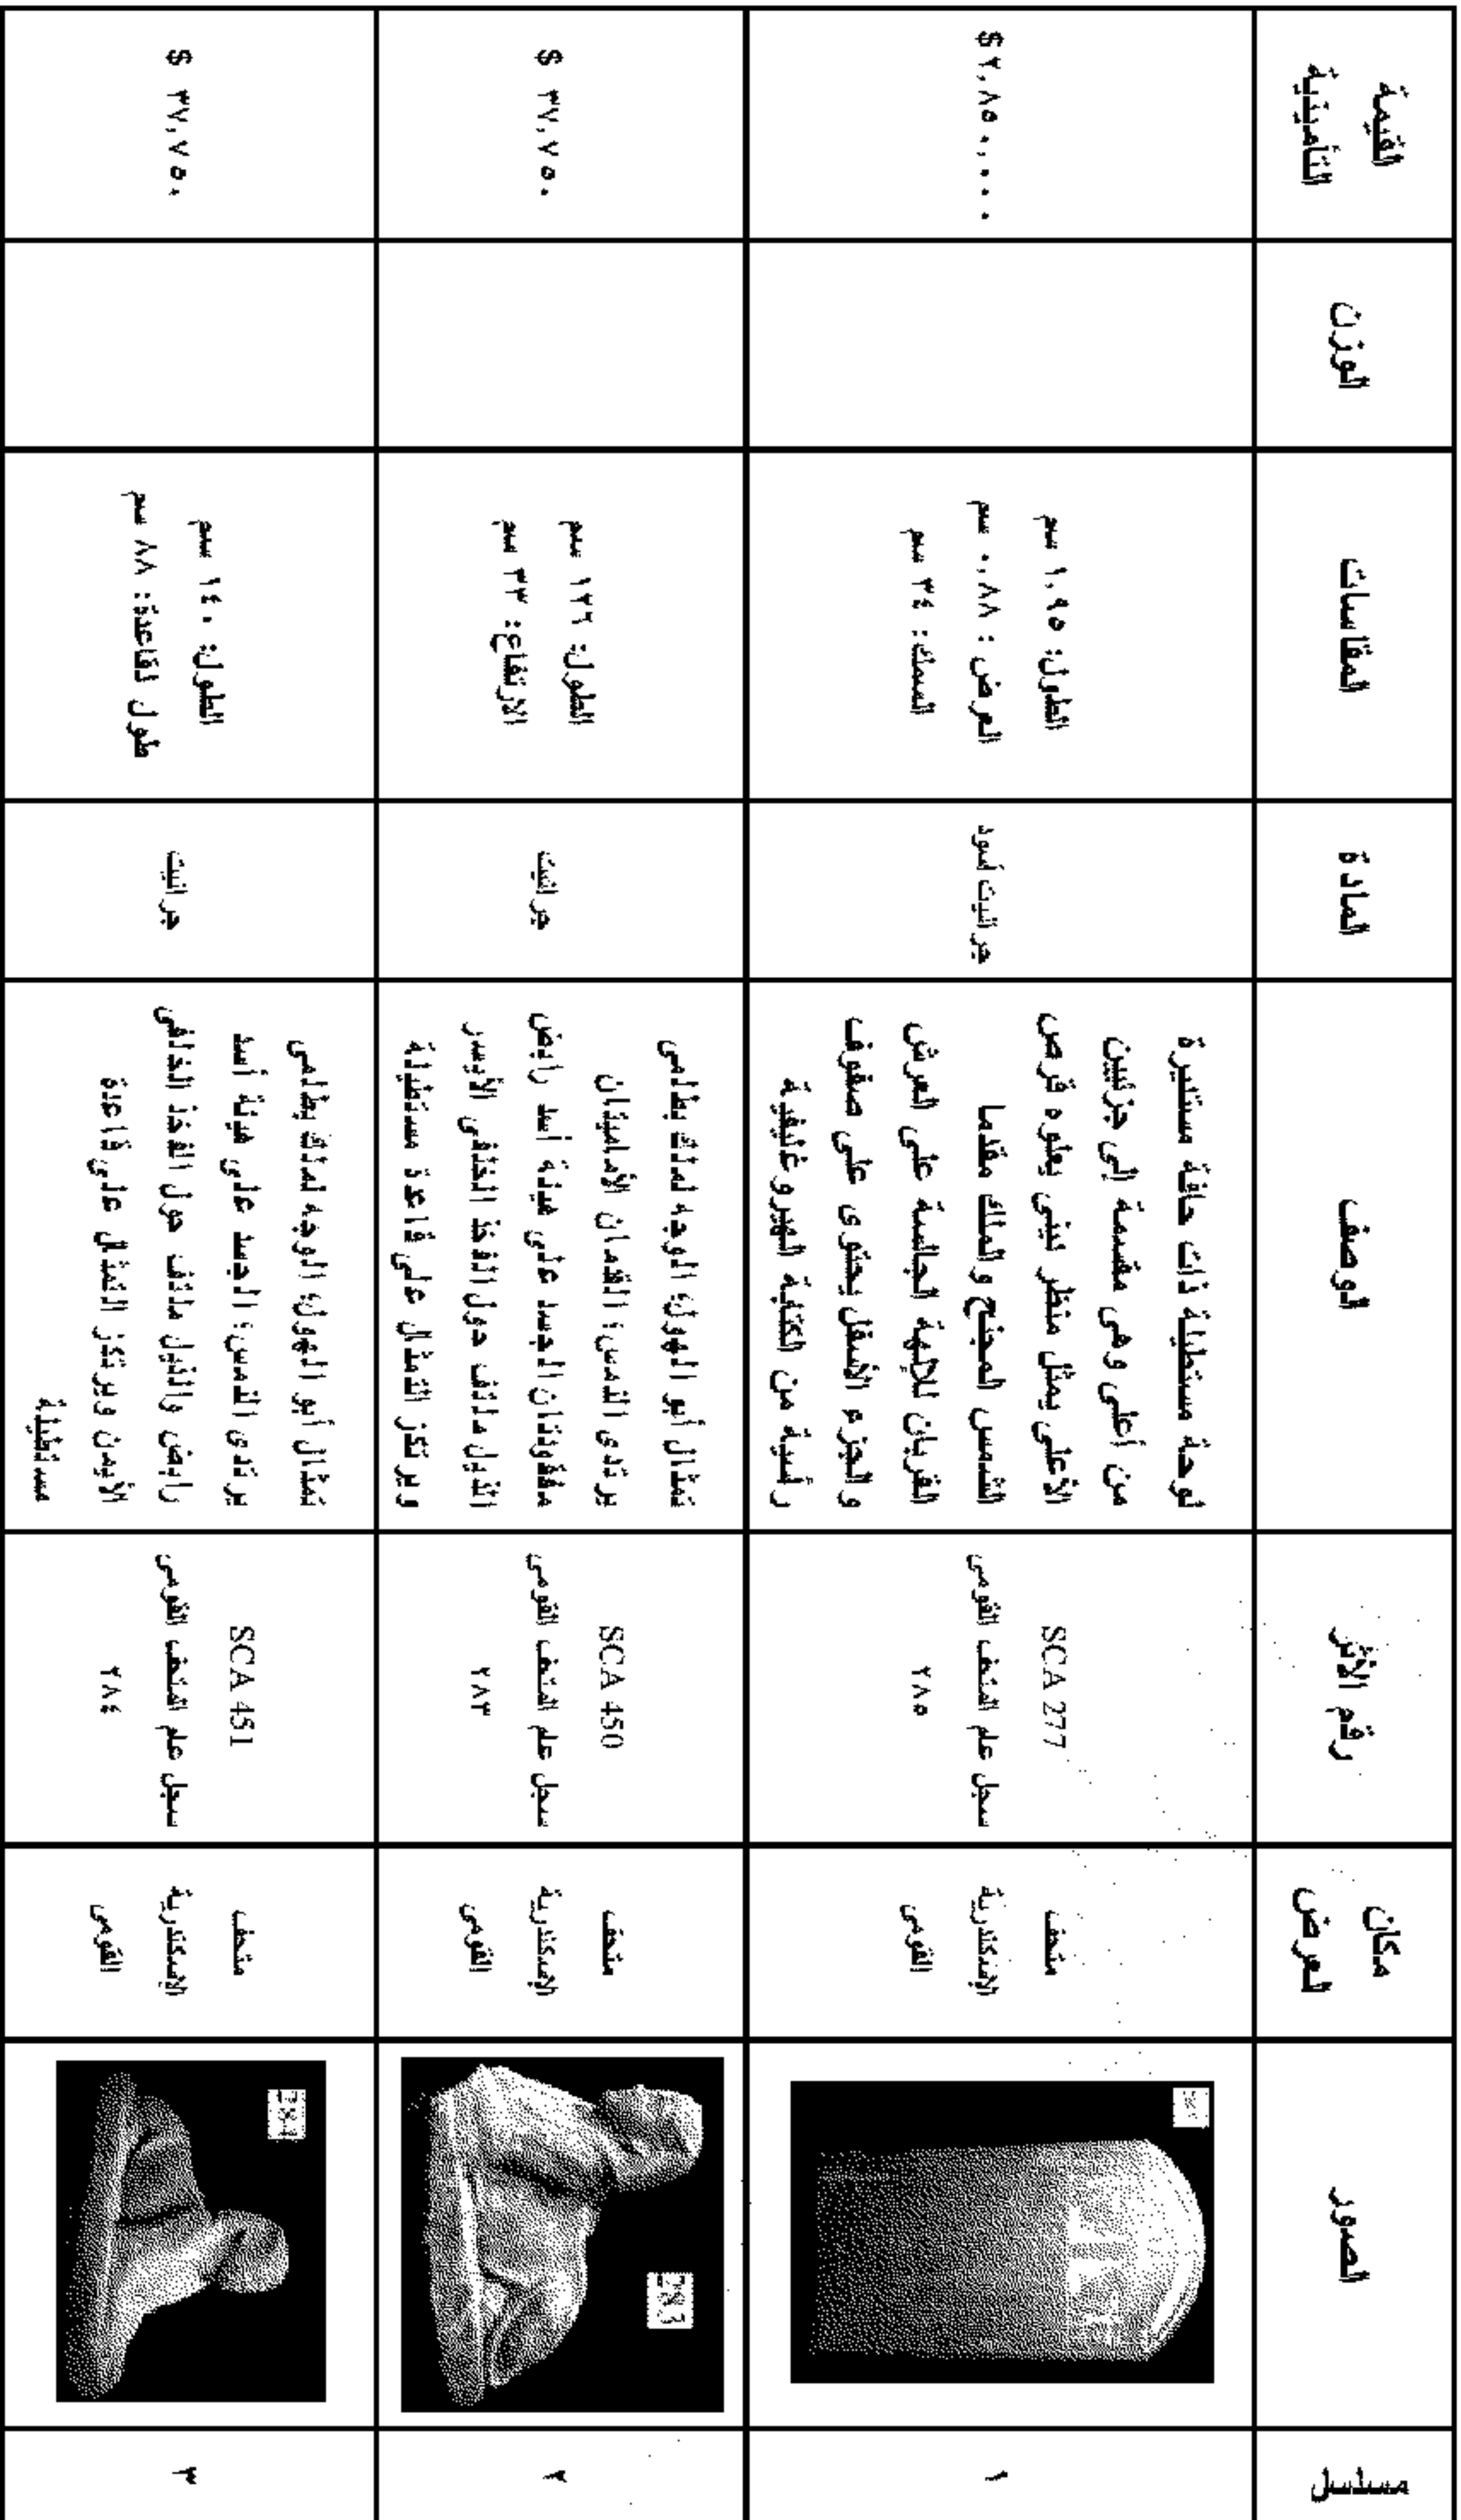 مسلسل
الصور
مكان
العرض
رقم الأثر
الوصف
المادة
المقاسات
الوزن
القيمة
التأمينية
١
متحف
الإسكندرية
القومى
SCA 277
سجل عام المتحف القومى
٢٨٥
لوحة مستطيلة ذات حافة مستديرة
من أعلى وهى مقسمة إلى جزئين
الأعلى يمثل منظر دينى يعلوه قرص
الشمس المجنح والملك مقدما
القربان للإلهة الجالسة على العرش
والجزء الأسفل يحتوى على صفوف
رأسية من الكتابة الهيروغليفية
جرانيت أسود
الطول: ١,٩٥ سم
العرض: ٠,٨٨ سم
السمك: ٣٤ سم
$ ٢,٨٥٠,٠٠٠
٢
متحف
الإسكندرية
القومى
SCA 450
سجل عام المتحف القومى
٢٨٣
تمثال أبو الهول؛ الوجه لملك بطلمى
يرتدى النمس؛ القدمان الأماميتان
مفقودتان الجسد على هيئة أسد رابض
الذيل ملتف حول الفخذ الخلفى الأيسر
ويرتكز التمثال على قاعدة مستطيلة
جرانيت
الطول: ١٢٦ سم
الارتفاع: ٣٣ سم
$ ٣٧,٧٥٠
283
٣
متحف
الإسكندرية
القومى
SCA 451
سجل عام المتحف القومى
٢٨٤
تمثال أبو الهول؛ الوجه لملك بطلمى
يرتدى النمس؛ الجسد على هيئة أسد
رابض والذيل ملتف حول الفخذ الخلفى
الأيمن ويرتكز التمثال على قاعدة
مستطيلة
جرانيت
الطول: ١٤٠ سم
طول القاعدة: ٨٨ سم
$ ٣٧,٧٥٠
284